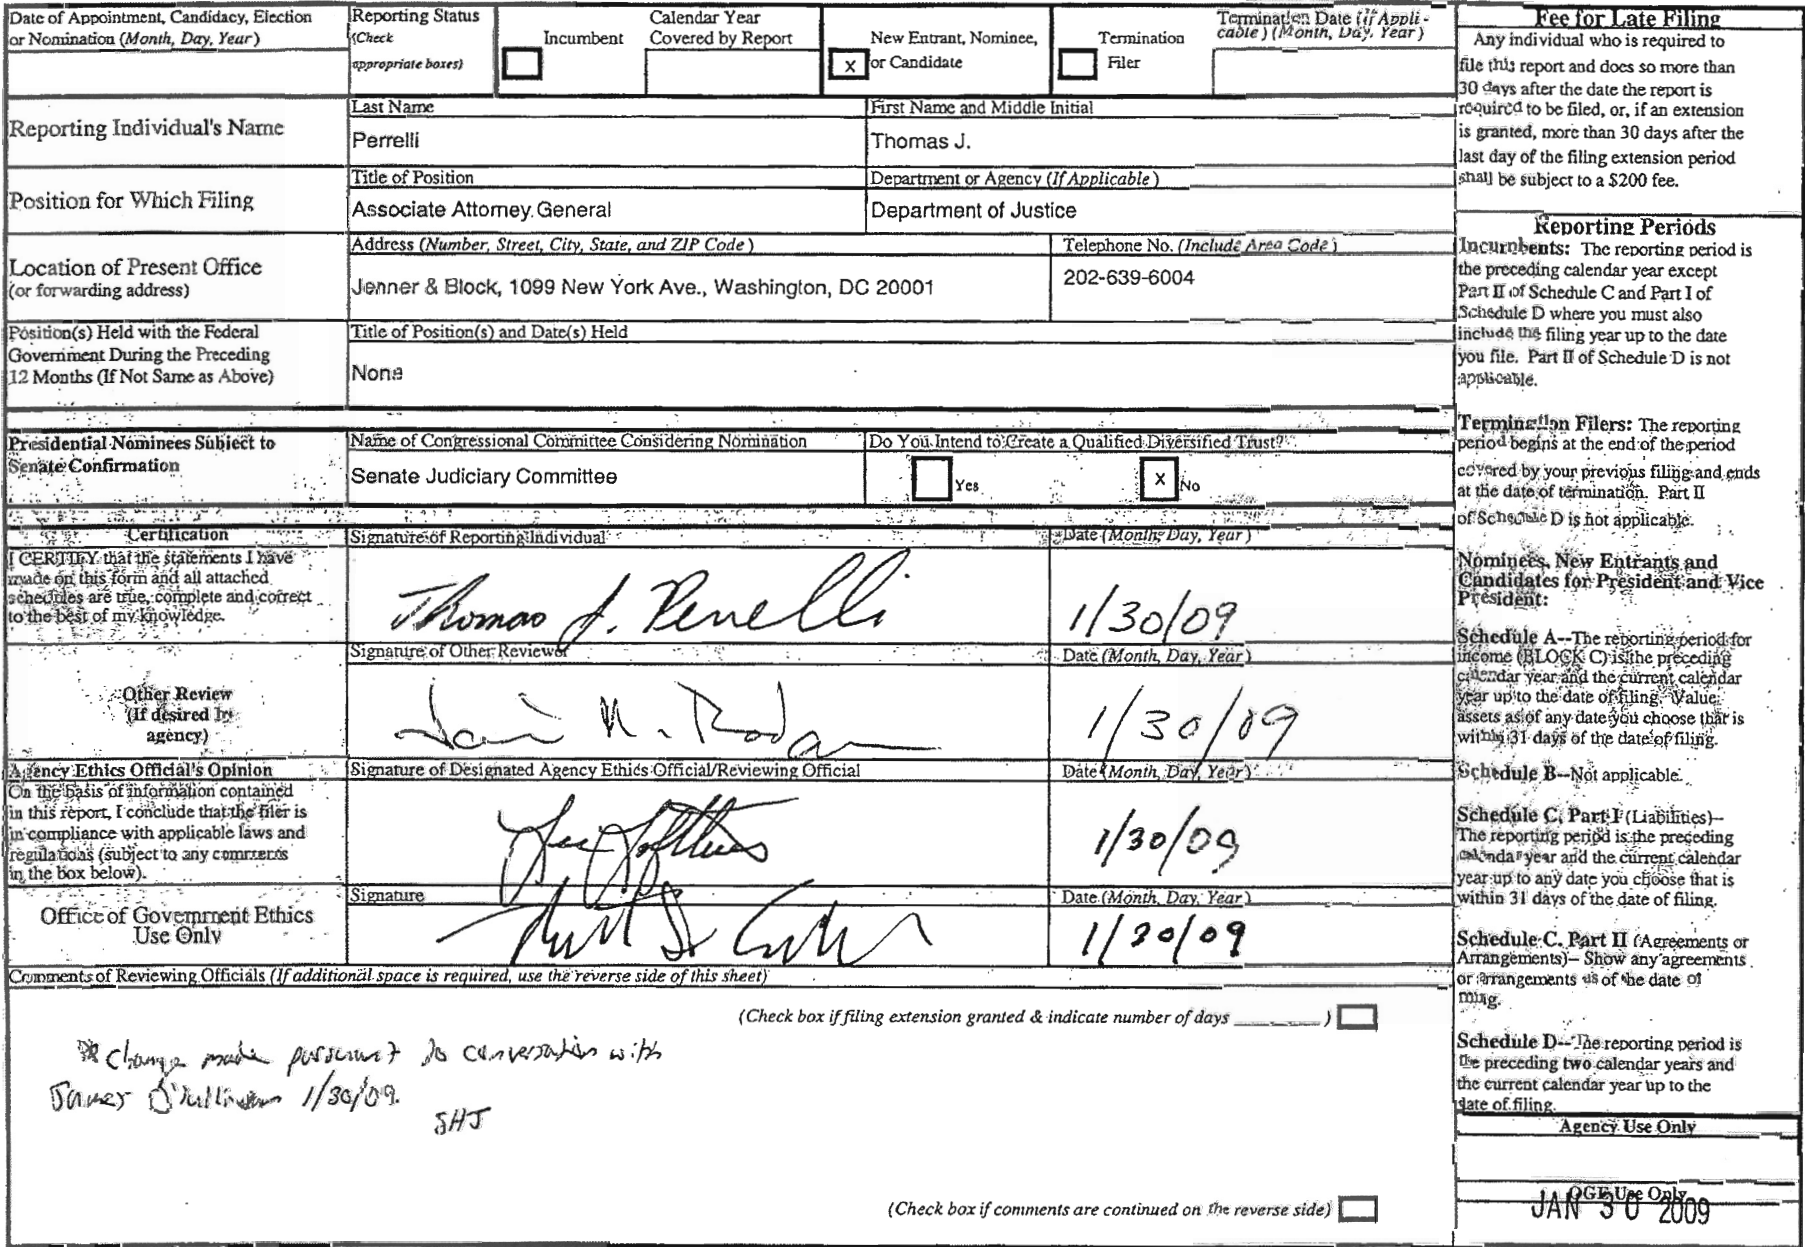 Date of Appointment, Candidacy, Election
or Nomination (Month, Day, Year)
Reporting Status
(Check
appropriate boxes)
Incumbent
Calendar Year
Covered by Report
x
New Entrant, Nominee,
or Candidate
Termination
Filer
Termination Date (if Appli-
cable) (Month, Day, Year)
Reporting Individual's Name
Last Name
Perrelli
First Name and Middle Initial
Thomas J.
Position for Which Filing
Title of Position
Associate Attorney General
Department or Agency (If Applicable)
Department of Justice
Location of Present Office
(or forwarding address)
Address (Number, Street, City, State, and ZIP Code)
Jenner & Block, 1099 New York Ave., Washington, DC 20001
Telephone No. (Include Area Code)
202-639-6004
Position(s) Held with the Federal
Government During the Preceding
12 Months (If Not Same as Above)
Title of Position(s) and Date(s) Held
None
Presidential Nominees Subject to
Senate Confirmation
Name of Congressional Committee Considering Nomination
Senate Judiciary Committee
Do You Intend to Create a Qualified Diversified Trust?
Yes
x
No
Certification
I CERTIFY that the statements I have
made on this form and all attached
schedules are true, complete and correct
to the best of my knowledge.
Signature of Reporting Individual
Thomas J. Perrelli
Date (Month, Day, Year)
1/30/09
Other Review
(If desired by
agency)
Signature of Other Reviewer
Date (Month, Day, Year)
1/30/09
Agency Ethics Official's Opinion
On the basis of information contained
in this report, I conclude that the filer is
in compliance with applicable laws and
regulations (subject to any comments
in the box below).
Signature of Designated Agency Ethics Official/Reviewing Official
Date (Month, Day, Year)
1/30/09
Office of Government Ethics
Use Only
Signature
Date (Month, Day, Year)
1/30/09
Comments of Reviewing Officials (If additional space is required, use the reverse side of this sheet)
(Check box if filing extension granted & indicate number of days ________ )
* Change made pursuant to conversation with
James O'Sullivan 1/30/09.
SHJ
(Check box if comments are continued on the reverse side)
Fee for Late Filing
Any individual who is required to
file this report and does so more than
30 days after the date the report is
required to be filed, or, if an extension
is granted, more than 30 days after the
last day of the filing extension period
shall be subject to a $200 fee.
Reporting Periods
Incumbents: The reporting period is
the preceding calendar year except
Part II of Schedule C and Part I of
Schedule D where you must also
include the filing year up to the date
you file. Part II of Schedule D is not
applicable.
Termination Filers: The reporting
period begins at the end of the period
covered by your previous filing and ends
at the date of termination. Part II
of Schedule D is not applicable.
Nominees, New Entrants and
Candidates for President and Vice
President:
Schedule A--The reporting period for
income (BLOCK C) is the preceding
calendar year and the current calendar
year up to the date of filing. Value
assets as of any date you choose that is
within 31 days of the date of filing.
Schedule B--Not applicable.
Schedule C, Part I (Liabilities)--
The reporting period is the preceding
calendar year and the current calendar
year up to any date you choose that is
within 31 days of the date of filing.
Schedule C, Part II (Agreements or
Arrangements)-- Show any agreements
or arrangements as of the date of
filing.
Schedule D--The reporting period is
the preceding two calendar years and
the current calendar year up to the
date of filing.
Agency Use Only
OGE Use Only
JAN 30 2009